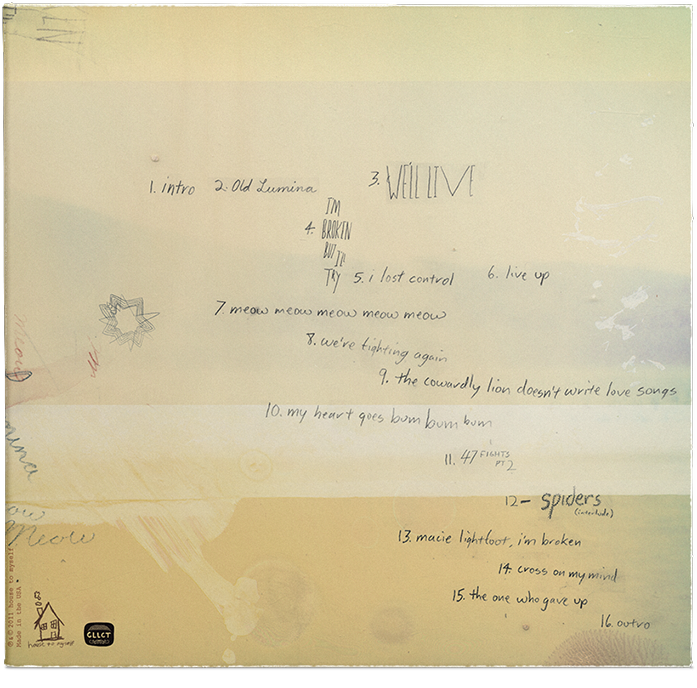 1. intro
2. Old Lumina
3. WE'LL LIVE
4. I'M
BROKEN
BUT I'LL
TRY
5. i lost control
6. live up
7. meow meow meow meow meow
8. we're fighting again
9. the cowardly lion doesn't write love songs
10. my heart goes bum bum bum
11. 47 FIGHTS
PT 2
12 - spiders
(interlude)
13. macie lightfoot, i'm broken
14. cross on my mind
15. the one who gave up
16. outro
meow
Meow
℗ & © 2011 house to myself
Made in the USA
house to myself
CLLCT